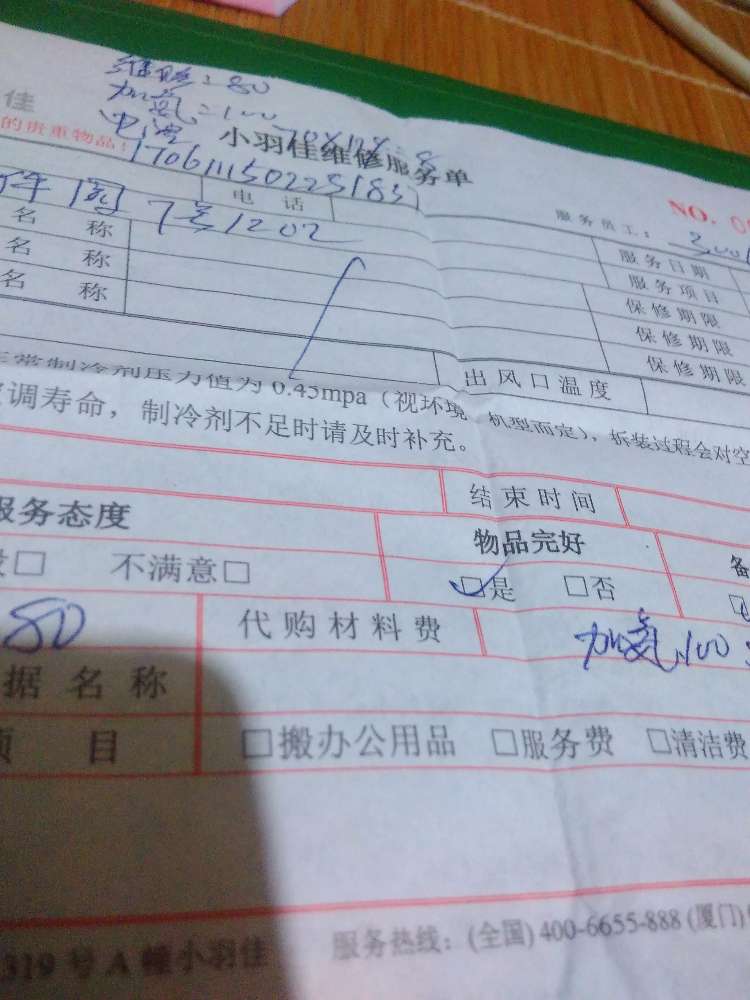 维修:80
佳 加氟:100
电源
小羽佳维修服务单
的贵重物品:
NO. 0
电 话
服务员工:
园 7号1202
名 称
服务日期
名 称
服务项目
名 称
保修期限
保修期限
保修期限
出风口温度
正常制冷剂压力值为 0.45mpa（视环境、机型而定），拆装过程会对空
调寿命，制冷剂不足时请及时补充。
结束时间
服务态度
物品完好
备
□ 不满意□
□是 □否
80
代购材料费
加氟100
据名称
项 目
□搬办公用品 □服务费 □清洁费
319 号 A 幢小羽佳 服务热线：(全国) 400-6655-888 (厦门)